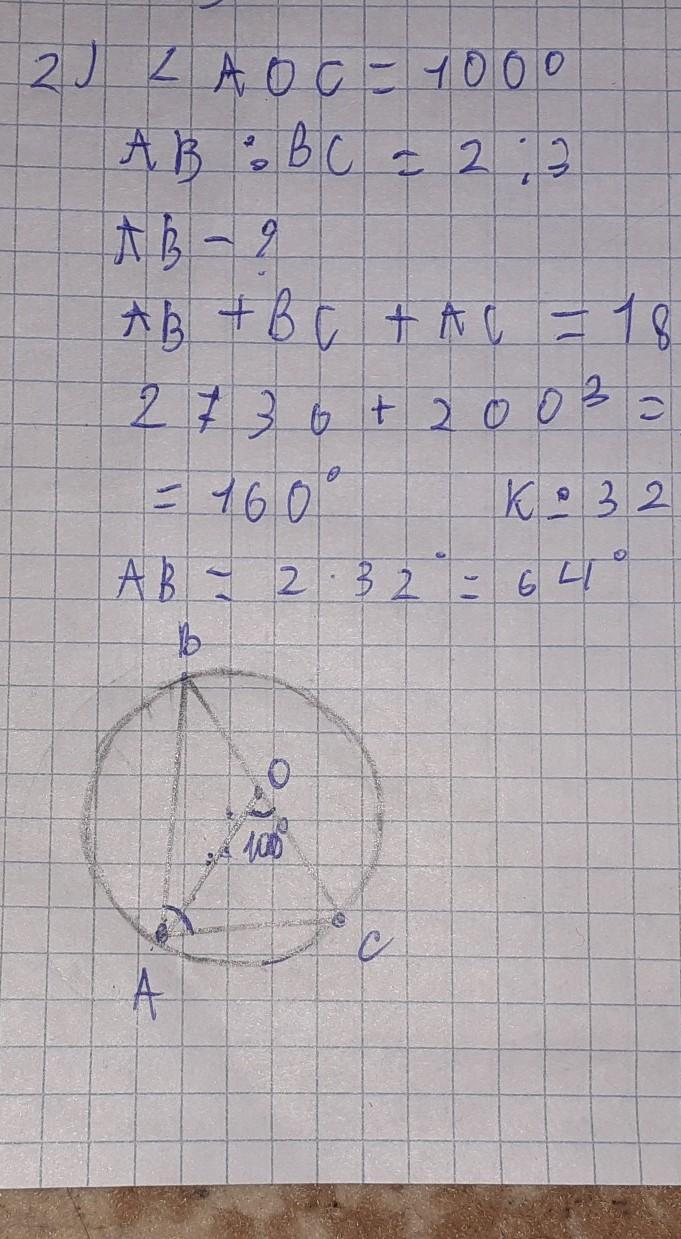 2) ∠ AOC = 100°
AB : BC = 2 : 3
AB - ?
AB + BC + AC = 18
2 7 3 6 + 2 0 0 3 =
= 160° K = 32
AB = 2 · 32° = 64°
B
O
100°
A
C